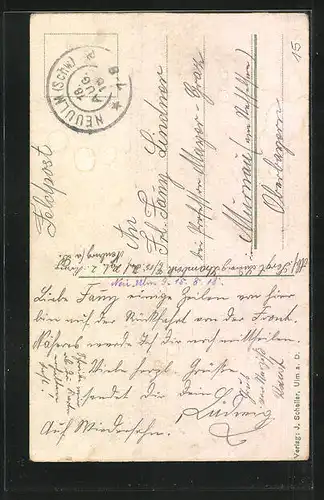 15
Feldpost
NEUULM (Schw.)
16 AUG 15
An
Frl. Fany Lindner
bei Professor Mayer-Graz
Murnau (am Staffelsee)
Oberbayern
Neu Ulm d. 15. 8. 15.
Liebe Fany einige Zeilen von hier
bin auf der Rückfahrt von der Front.
Näheres werde Dir noch mittheilen.
Viele herzl. Grüsse
sendet dir dein
Ludwig
Auf Wiedersehn.
Verlag: J. Scheller, Ulm a. D.